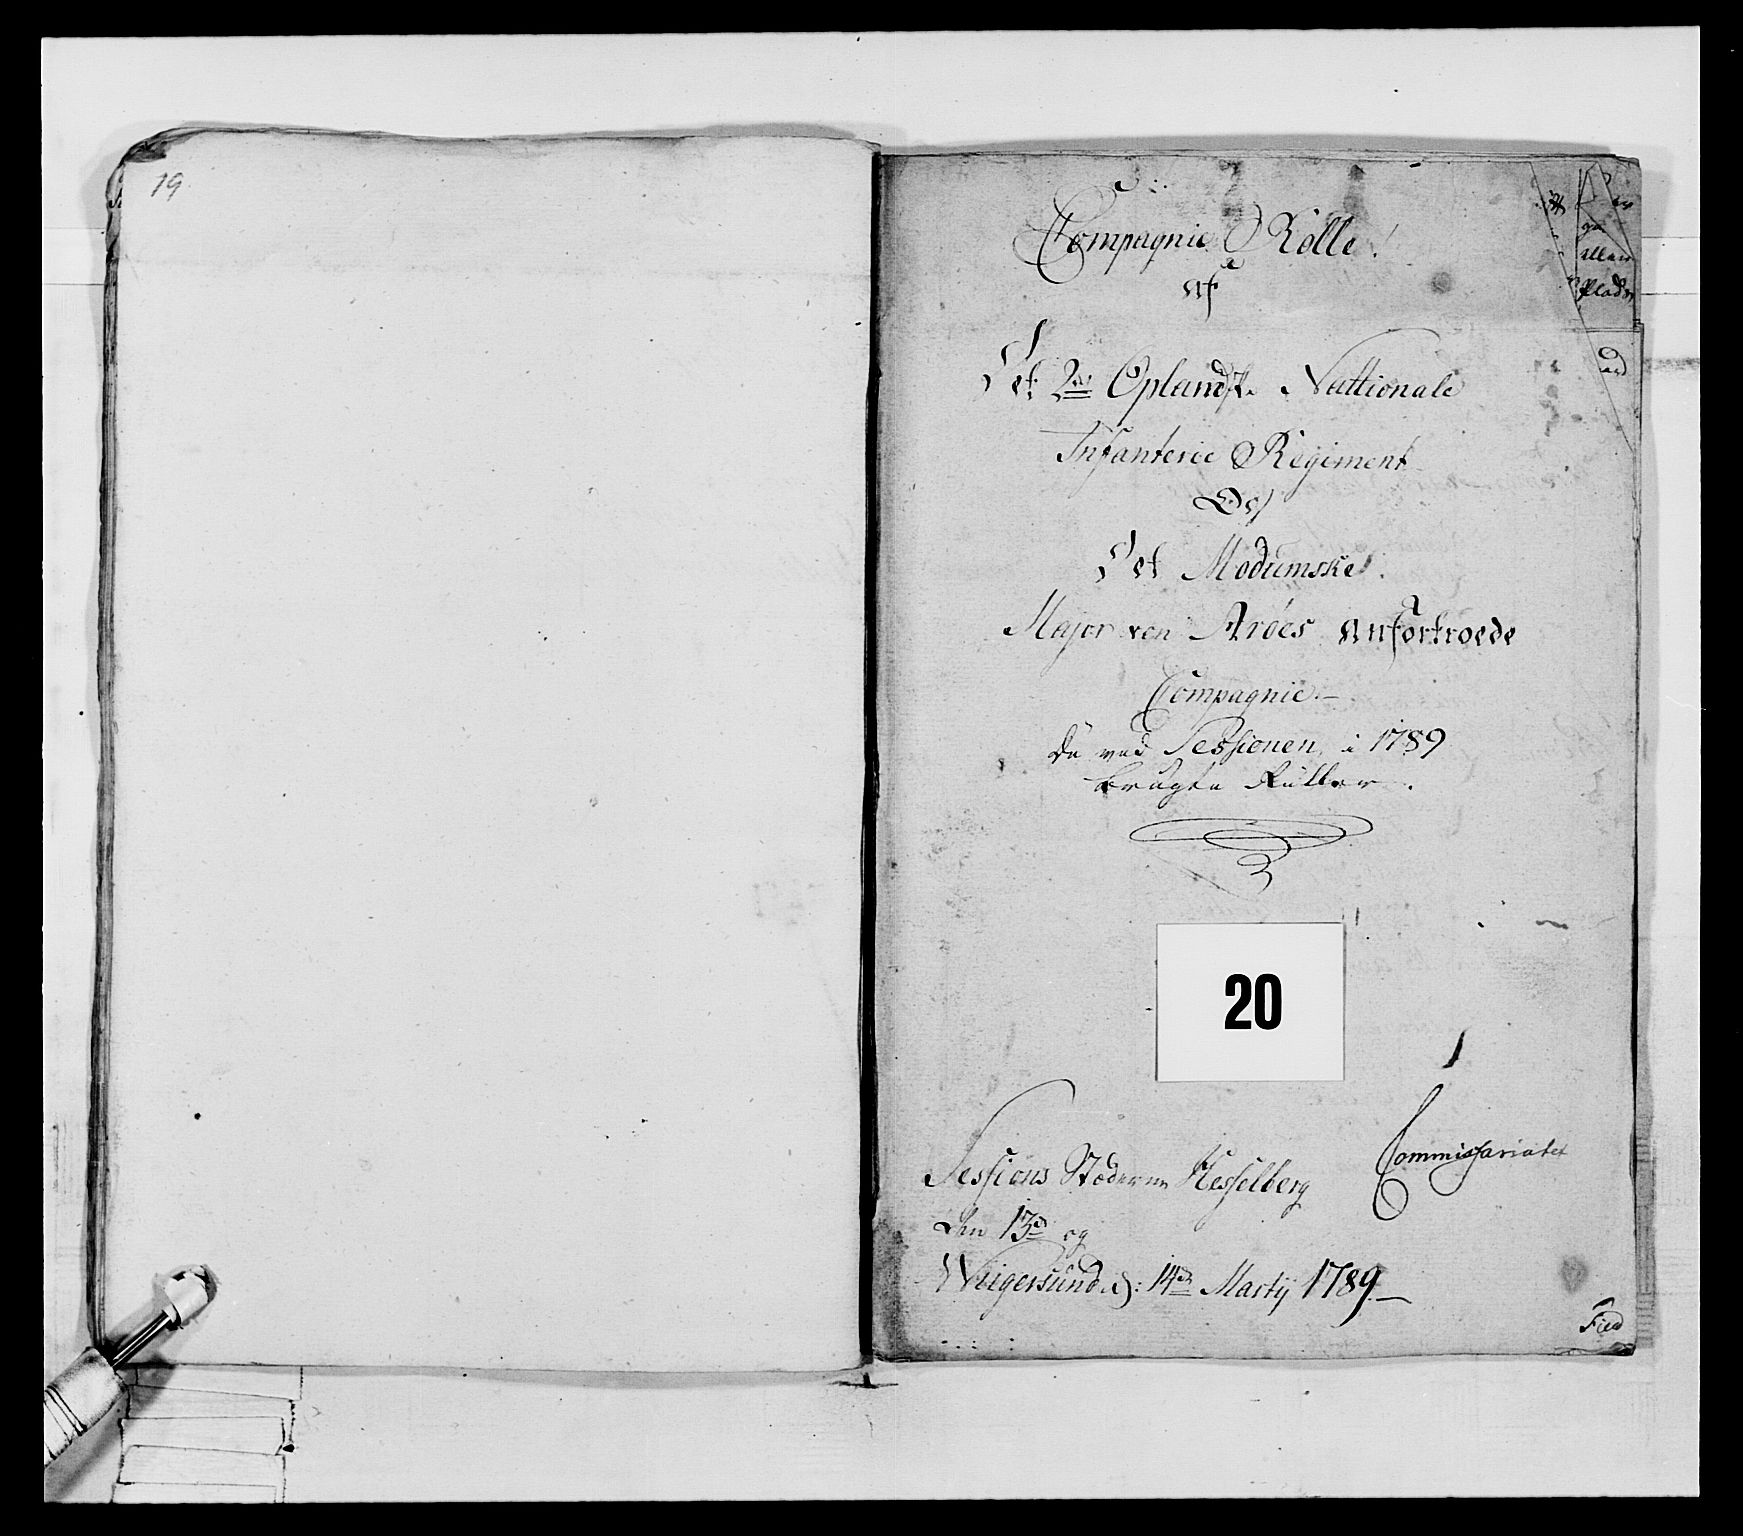 19.
Compagnie Rolle.
af
Det 2det Oplandske Nattionale
Infanterie Regiment
Og
Det Modumske
Major von Aröes anfortroede
Compagnie.
De ved Sessionen i 1789
brugte Ruller.
20
Commissariatet
Sessions Stæderne Hesselberg
den 13de og
Wiigersund d: 14de Martij 1789